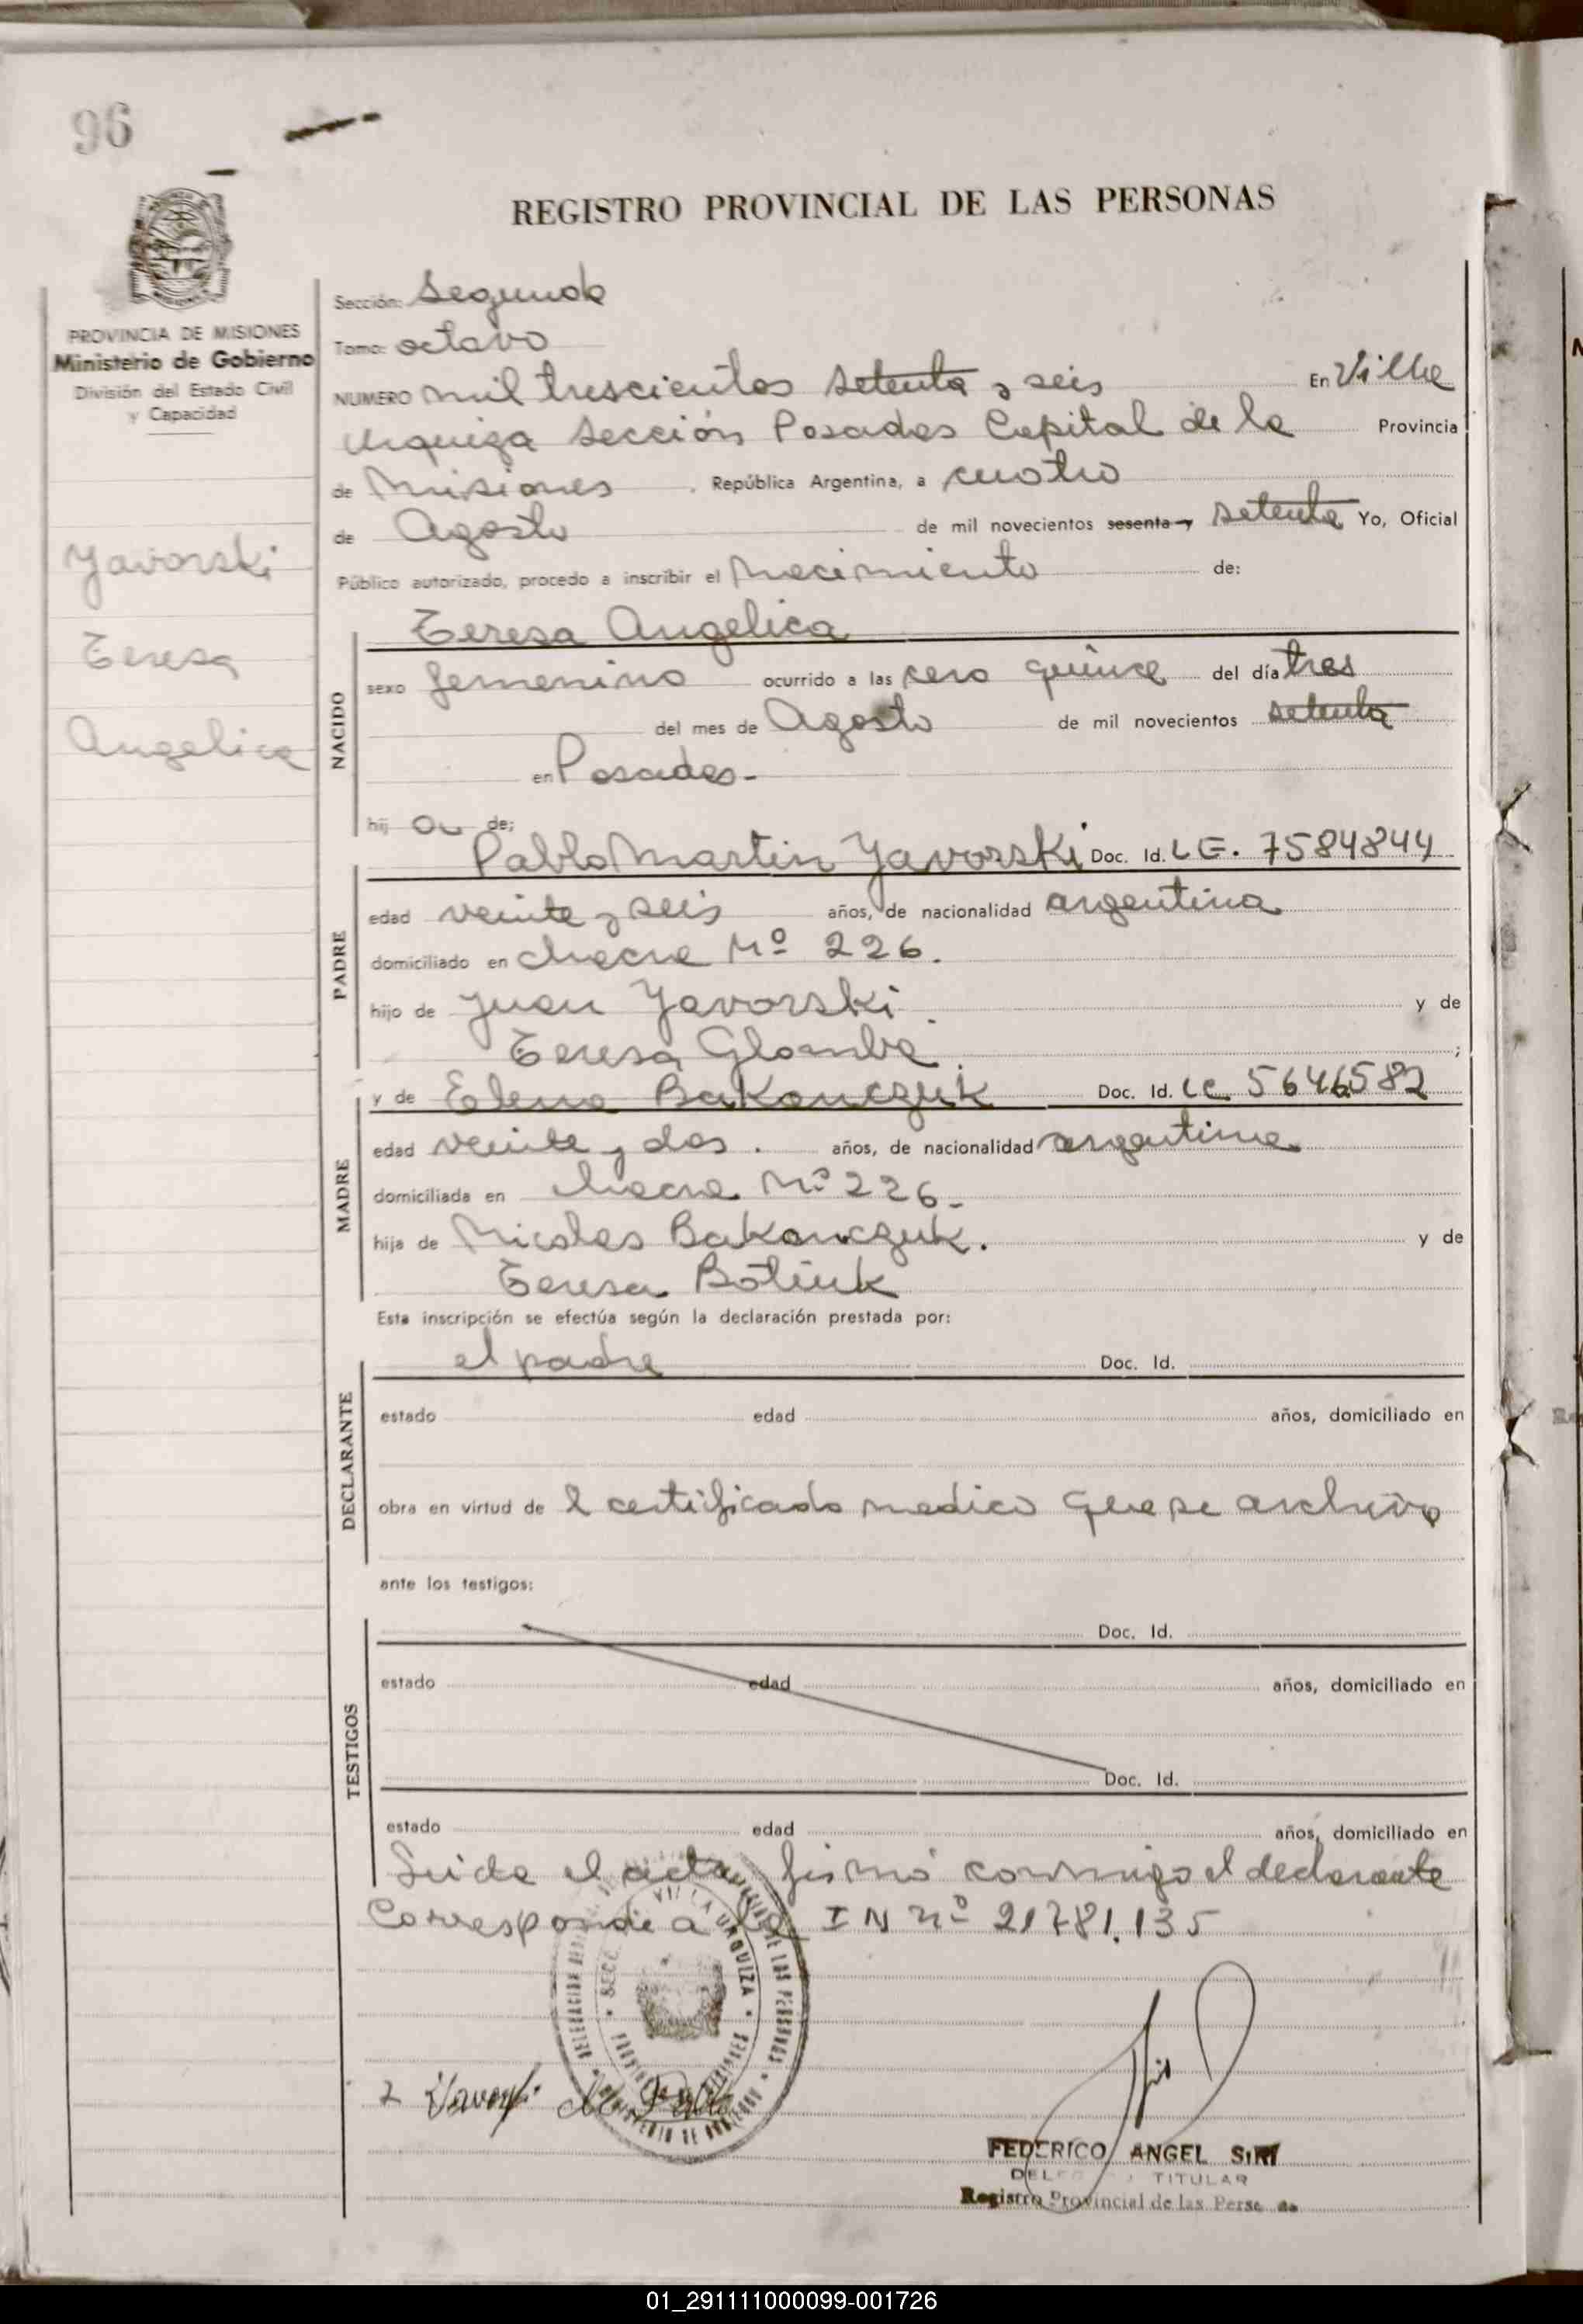 96
REGISTRO PROVINCIAL DE LAS PERSONAS
PROVINCIA DE MISIONES
Ministerio de Gobierno
División del Estado Civil
y Capacidad
Yavorski
Teresa
Angelica
Sección: Segunda
Tomo: octavo
NUMERO mil trescientos setenta y seis En Villa
Urquiza Sección Posadas Capital de la Provincia
de Misiones . República Argentina, a cuatro
de Agosto de mil novecientos sesenta y setenta Yo, Oficial
Público autorizado, procedo a inscribir el nacimiento de:
NACIDO
Teresa Angelica
sexo femenino ocurrido a las cero quince del día tres
del mes de Agosto de mil novecientos setenta
en Posadas-
hij a de:
PADRE
Pablo Martin Yavorski Doc. Id. LE. 7584844
edad veinte y seis años, de nacionalidad argentina
domiciliado en chacra Nº 226.
hijo de Juan Yavorski. y de
Teresa Glomba. ;
MADRE
y de Elena Bakonczuk Doc. Id. LC 5646582
edad veinte y dos. años, de nacionalidad argentina
domiciliada en chacra Nº 226-
hija de Nicolas Bakonczuk. y de
Teresa Botiuk
Esta inscripción se efectúa según la declaración prestada por:
DECLARANTE
el padre Doc. Id.
estado edad años, domiciliado en
obra en virtud de l certificado medico que se archiva
ante los testigos:
TESTIGOS
Doc. Id.
estado edad años, domiciliado en
Doc. Id.
estado edad años, domiciliado en
Leida el acta firmó conmigo el declarante
Corresponde a la I N nº 21781.135
VILLA URQUIZA
FEDERICO ANGEL SIRI
TITULAR
Registro Provincial de las Perso
01_291111000099-001726